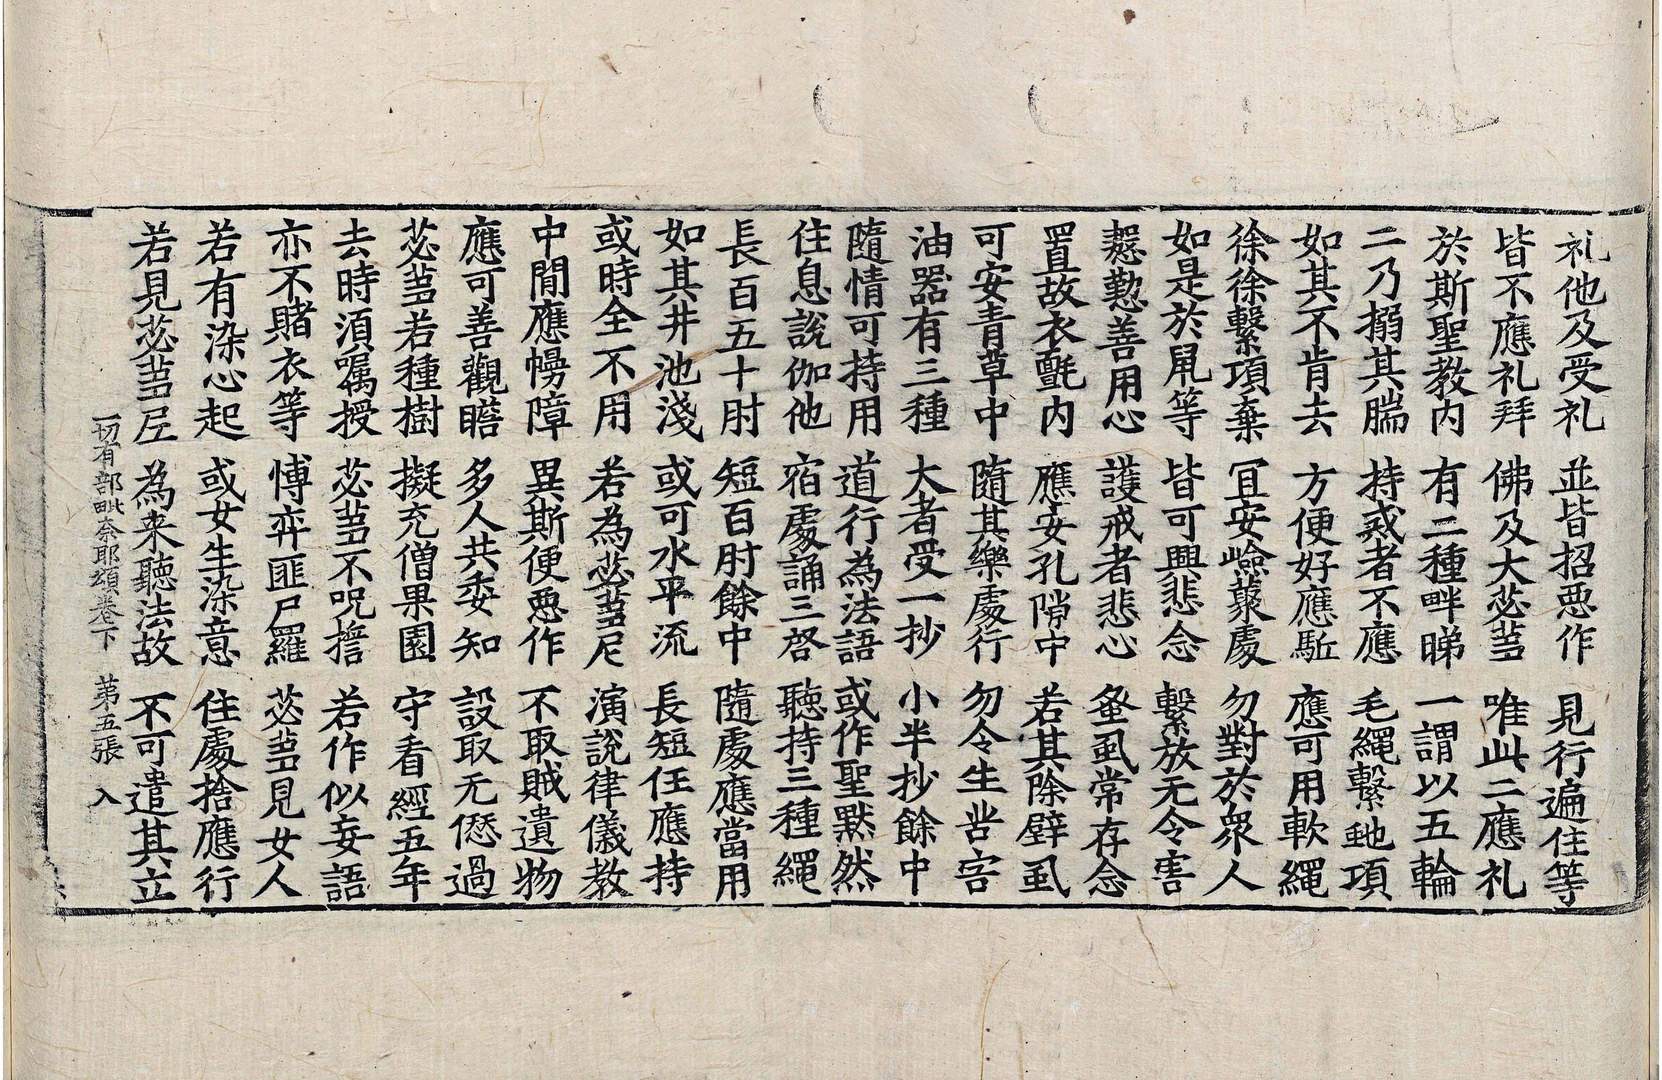 礼他及受礼 並皆招惡作 見行遍住等
皆不應礼拜 佛及大苾蒭 唯此二應礼
於斯聖教內 有二種畔睇 一謂以五輪
二乃搦其腨 持戒者不應 毛繩繫虵項
如其不肯去 方便好應駈 應可用軟繩
徐徐繫項棄 冝安嶮藂處 勿對於衆人
如是於鼠等 皆可興悲念 繫放无令害
慇懃善用心 護戒者悲心 蚤虱常存念
置故衣氎內 應安孔隙中 若其除壁虱
可安青草中 隨其樂處行 勿令生苦害
油器有三種 大者受一抄 小半抄餘中
隨情可持用 道行為法語 或作聖默然
住息說伽他 宿處誦三啓 聽持三種繩
長百五十肘 短百肘餘中 隨處應當用
如其井池淺 或可水平流 長短任應持
或時全不用 若為苾蒭尼 演說律儀教
中間應幔障 異斯便惡作 不取賊遺物
應可善觀瞻 多人共委知 設取无𠎝過
苾蒭若種樹 擬充僧果園 守看經五年
去時湏囑授 苾蒭不呪擔 若作似妄語
亦不賭衣等 愽弈匪尸羅 苾蒭見女人
若有染心起 或女生染意 住處捨應行
若見苾蒭𡰱 為来聽法故 不可遣其立
一切有部毗奈耶頌卷下 第五張 入